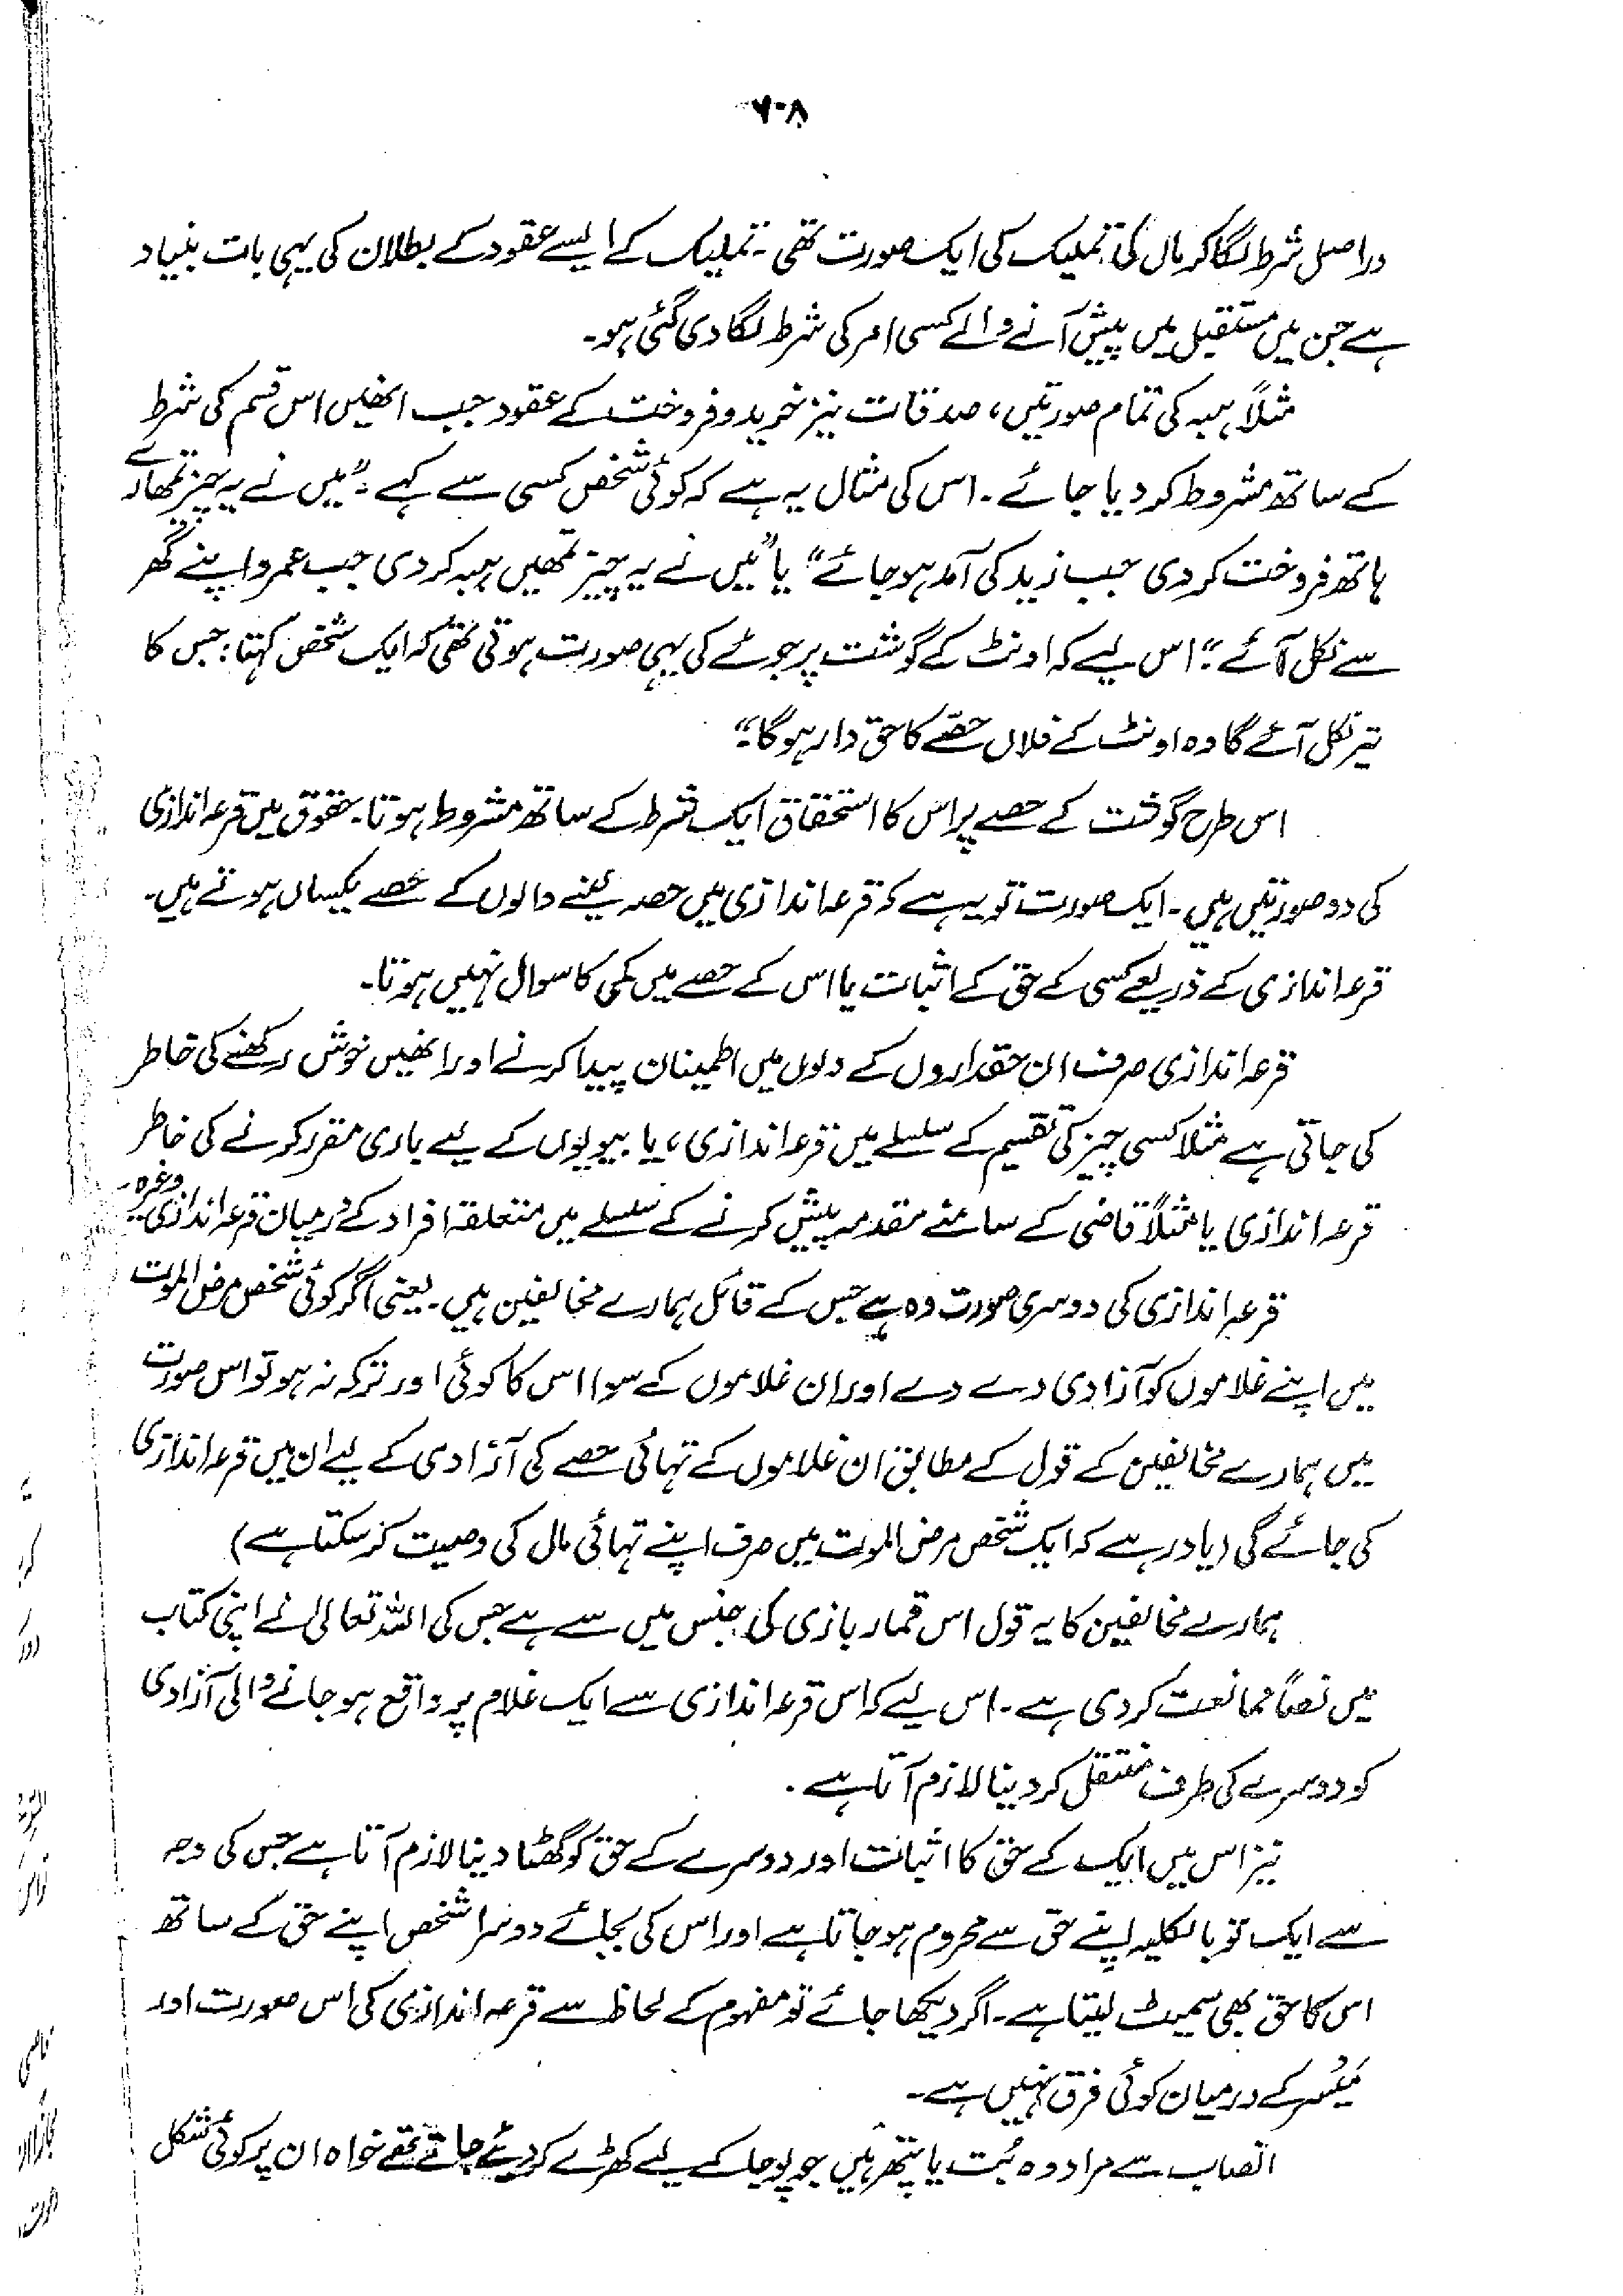 ۷۰۸
دراصل شرط لگا کر مال کی تملیک کی ایک صورت تھی۔ تملیک کے ایسے عقود کے بطلان کی یہی بات بنیاد
ہے جن میں مستقبل میں پیش آنے والے کسی امر کی شرط لگا دی گئی ہو۔
مثلاً ہبہ کی تمام صورتیں، صدقات نیز خرید و فروخت کے عقود جب انھیں اس قسم کی شرط
کے ساتھ مشروط کر دیا جائے۔ اس کی مثال یہ ہے کہ کوئی شخص کسی سے کہے :”میں نے یہ چیز تمھارے
ہاتھ فروخت کر دی جب زید کی آمد ہو جائے“ یا ”میں نے یہ چیز تمھیں ہبہ کر دی جب عمرو اپنے گھر
سے نکل آئے“؛ اس لیے کہ اونٹ کے گوشت پر جوئے کی یہی صورت ہوتی تھی کہ ایک شخص کہتا: جس کا
تیر نکل آئے گا وہ اونٹ کے فلاں حصے کا حق دار ہوگا“۔
اس طرح گوشت کے حصے پر اس کا استحقاق ایک شرط کے ساتھ مشروط ہوتا۔ حقوق میں قرعہ اندازی
کی دو صورتیں ہیں۔ ایک صورت تو یہ ہے کہ قرعہ اندازی میں حصہ لینے والوں کے حصے یکساں ہوتے ہیں۔
قرعہ اندازی کے ذریعے کسی کے حق کے اثبات یا اس کے حصے میں کمی کا سوال نہیں ہوتا۔
قرعہ اندازی صرف ان حقداروں کے دلوں میں اطمینان پیدا کرنے اور انھیں خوش رکھنے کی خاطر
کی جاتی ہے مثلا کسی چیز کی تقسیم کے سلسلے میں قرعہ اندازی، یا بیویوں کے لیے باری مقرر کرنے کی خاطر
قرعہ اندازی یا مثلاً قاضی کے سامنے مقدمہ پیش کرنے کے سلسلے میں متعلقہ افراد کے درمیان قرعہ اندازی وغیرہ۔
قرعہ اندازی کی دوسری صورت وہ ہے جس کے قائل ہمارے مخالفین ہیں۔ یعنی اگر کوئی شخص مرض الموت
میں اپنے غلاموں کو آزادی دے دے اور ان غلاموں کے سوا اس کا کوئی اور ترکہ نہ ہو تو اس صورت
میں ہمارے مخالفین کے قول کے مطابق ان غلاموں کے تہائی حصے کی آزادی کے لیے ان میں قرعہ اندازی
کی جائے گی (یاد رہے کہ ایک شخص مرض الموت میں صرف اپنے تہائی مال کی وصیت کر سکتا ہے)
ہمارے مخالفین کا یہ قول اس قمار بازی کی جنس میں سے ہے جس کی اللہ تعالیٰ نے اپنی کتاب
میں نصاً ممانعت کر دی ہے۔ اس لیے کہ اس قرعہ اندازی سے ایک غلام پر واقع ہو جانے والی آزادی
کو دوسرے کی طرف منتقل کر دینا لازم آتا ہے۔
نیز اس میں ایک کے حق کا اثبات اور دوسرے کے حق کو گھٹا دینا لازم آتا ہے جس کی وجہ
سے ایک تو بالکلیہ اپنے حق سے محروم ہو جاتا ہے اور اس کی بجائے دوسرا شخص اپنے حق کے ساتھ
اس کا حق بھی سمیٹ لیتا ہے۔ اگر دیکھا جائے تو مفہوم کے لحاظ سے قرعہ اندازی کی اس صورت اور
مَیْسِر کے درمیان کوئی فرق نہیں ہے۔
انصاب سے مراد وہ بُت یا پتھر ہیں جو پوجا کے لیے کھڑے کر دیئے جاتے تھے خواہ ان پر کوئی شکل